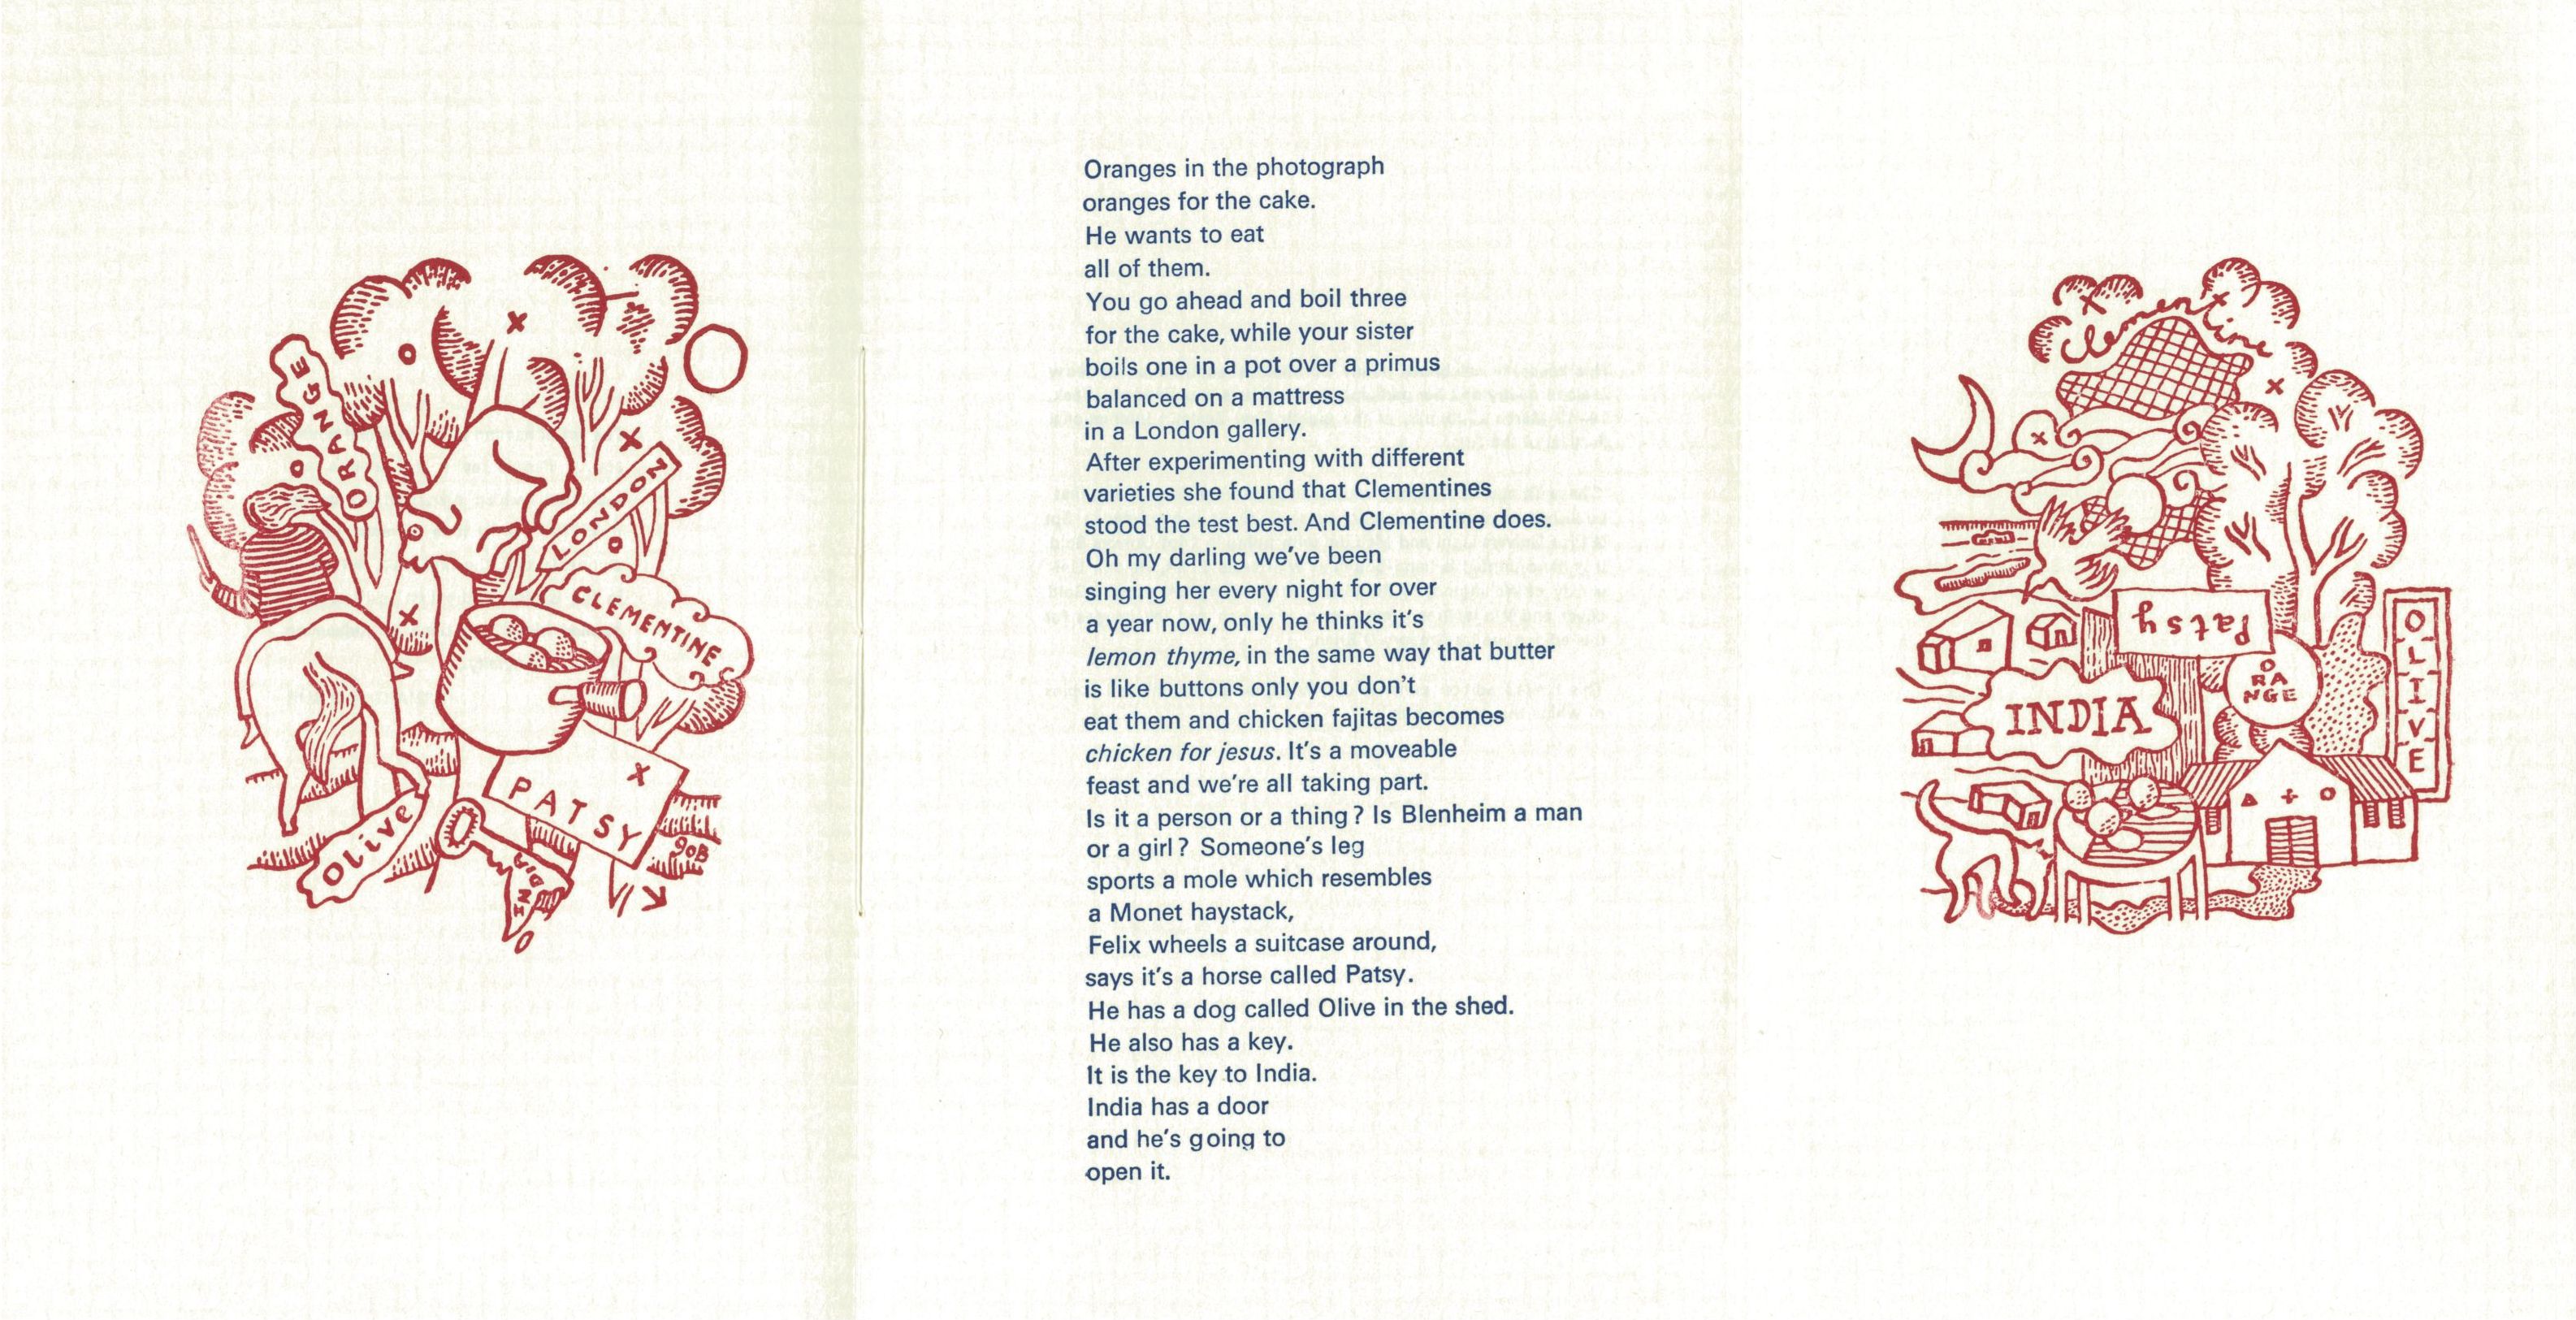 ORANGE
LONDON
CLEMENTINE
PATSY
Olive
INDIA
Oranges in the photograph
oranges for the cake.
He wants to eat
all of them.
You go ahead and boil three
for the cake, while your sister
boils one in a pot over a primus
balanced on a mattress
in a London gallery.
After experimenting with different
varieties she found that Clementines
stood the test best. And Clementine does.
Oh my darling we've been
singing her every night for over
a year now, only he thinks it's
lemon thyme, in the same way that butter
is like buttons only you don't
eat them and chicken fajitas becomes
chicken for jesus. It's a moveable
feast and we're all taking part.
Is it a person or a thing? Is Blenheim a man
or a girl? Someone's leg
sports a mole which resembles
a Monet haystack,
Felix wheels a suitcase around,
says it's a horse called Patsy.
He has a dog called Olive in the shed.
He also has a key.
It is the key to India.
India has a door
and he's going to
open it.
Clementine
Patsy
OLIVE
O
RA
NGE
INDIA